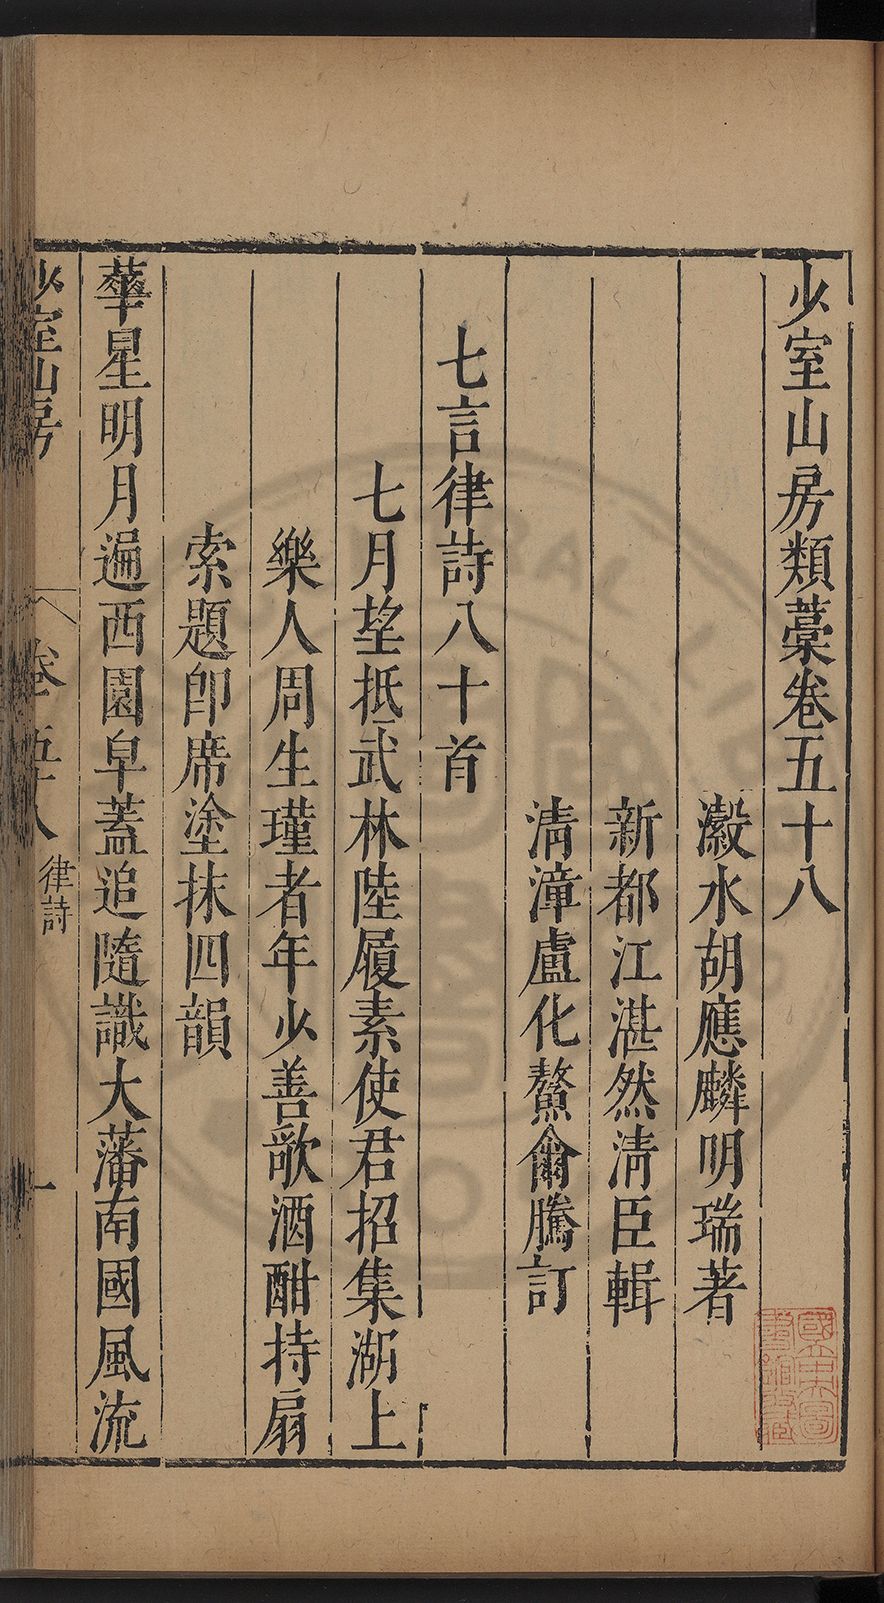 少室山房類藁卷五十八
瀫水胡應麟明瑞著
新都江湛然淸臣輯
淸漳盧化鰲爾騰訂
七言律詩八十首
七月望抵武林陸履素使君招集湖上
樂人周生瑾者年少善歌酒酣持扇
索題卽席塗抹四韻
華星明月遍西園皁蓋追隨識大藩南國風流
少室山房
卷五十八
律詩
一
國立中央圖書館收藏